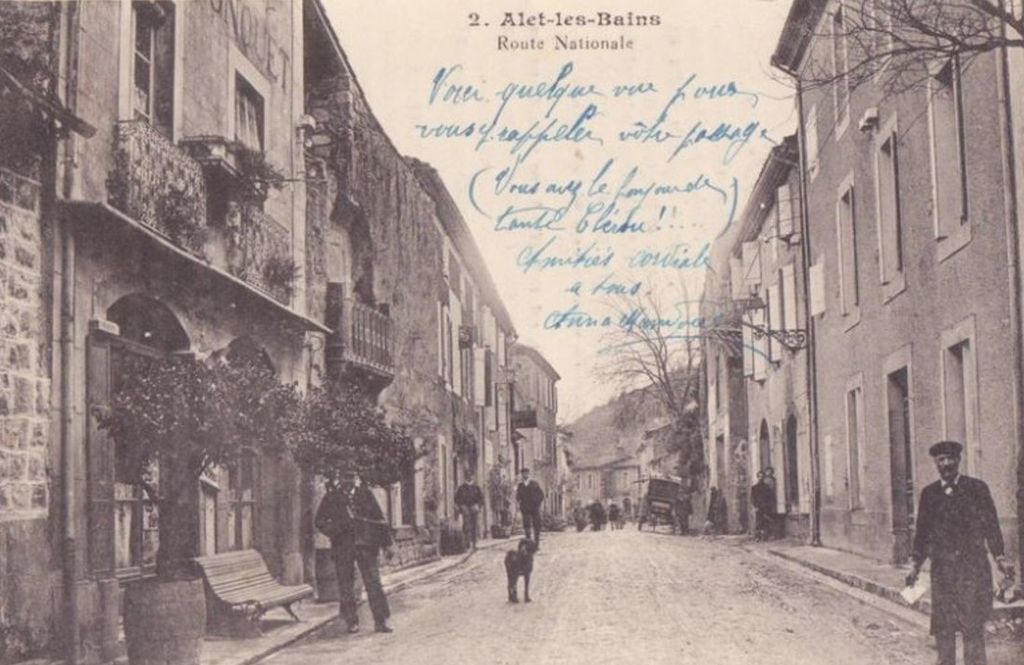 2. Alet-les-Bains
Route Nationale
Voici quelque vue pour
vous rappeler votre passage
(Vous avez le bonjour de
tante Clérine!!....)
Amitiés cordiale
a tous
Anna